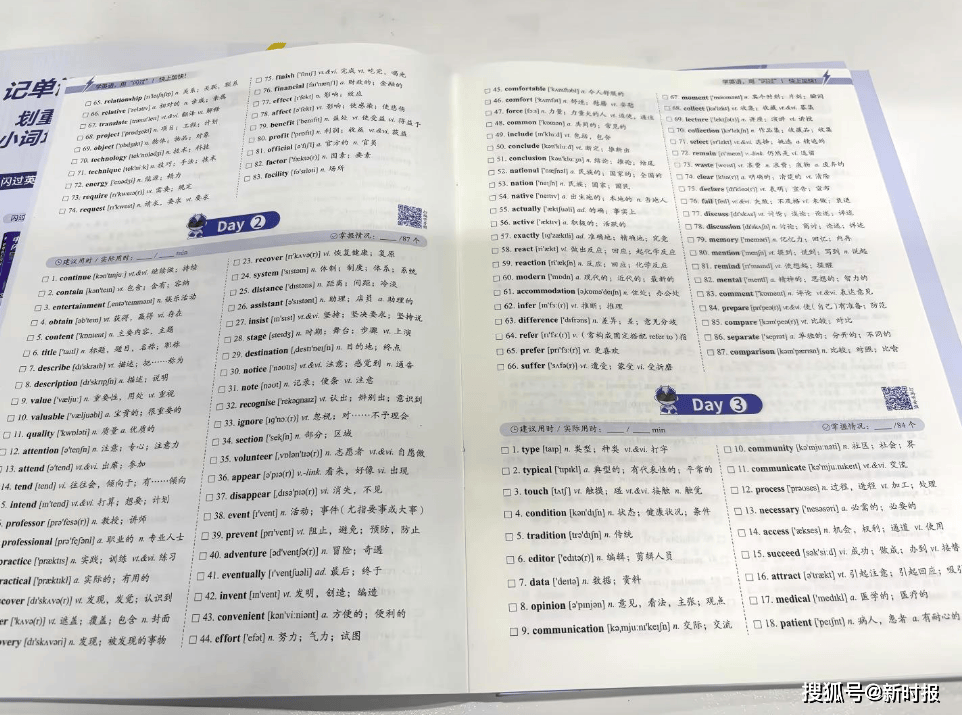 记单
划重
小词
闪过英
闪过
学英语,用“闪过”!快上加快!
65. relationship n. 关系;关联,联系
66. relative a. 相对的 n. 亲戚;亲属
67. translate vt.&vi. 翻译 vt. 解释
68. project n. 项目;工程;计划
69. object n. 物体,物品;对象
70. technology n. 技术;科技
71. technique n. 技巧;手法;技术
72. energy n. 能源;精力
73. require vt. 需要;规定
74. request n. 请求,要求 vt. 要求
75. finish vt.&vi. 完成 vt. 吃完,喝光
76. financial a. 财政的;金融的
77. effect n. 影响;效应
78. affect vt. 影响;使感染;使悲伤
79. benefit n. 益处 vt. 使受益 vi. 得益于
80. profit n. 利润;收益 vt.&vi. 获益
81. official a. 官方的 n. 官员
82. factor n. 因素;要素
83. facility n. 场所
Day 2
建议用时 / 实际用时:___ / ___ min
掌握情况:___ /87 个
1. continue [kən'tɪnjuː] vt.&vi. 继续做;持续
2. contain [kən'teɪn] vt. 包含;含有;容纳
3. entertainment n. 娱乐活动
4. obtain [əb'teɪn] vt. 获得,赢得 vi. 存在
5. content n. 主要内容,主题
6. title ['taɪtl] n. 标题,题目,名称;职称
7. describe [dɪ'skraɪb] vt. 描述;把……称为
8. description [dɪ'skrɪpʃn] n. 描述;说明
9. value ['væljuː] n. 重要性,用处 vt. 重视
10. valuable ['væljuəbl] a. 宝贵的;很重要的
11. quality ['kwɒləti] n. 质量 a. 优质的
12. attention [ə'tenʃn] n. 注意;专心;注意力
13. attend [ə'tend] vt.&vi. 出席;参加
14. tend [tend] vi. 往往会,倾向于;有……倾向
5. intend [ɪn'tend] vt.&vi. 打算;想要;计划
professor [prə'fesə(r)] n. 教授;讲师
professional [prə'feʃənl] a. 职业的 n. 专业人士
practice ['præktɪs] n. 实践;训练 vt.&vi. 练习
ractical ['præktɪkl] a. 实际的;有用的
scover [dɪ'skʌvə(r)] vt. 发现,发觉;认识到
er ['kʌvə(r)] vt. 遮盖;覆盖;包含 n. 封面
overy [dɪ'skʌvəri] n. 发现;被发现的事物
23. recover [rɪ'kʌvə(r)] vi. 恢复健康;复原
24. system ['sɪstəm] n. 体制;制度;体系;系统
25. distance ['dɪstəns] n. 距离;间距;冷淡
26. assistant [ə'sɪstənt] n. 助理;店员 a. 助理的
27. insist [ɪn'sɪst] vt.&vi. 坚持;坚决要求;坚持说
28. stage [steɪdʒ] n. 时期;舞台;步骤 vt. 上演
29. destination [ˌdestɪ'neɪʃn] n. 目的地;终点
30. notice ['nəʊtɪs] vt.&vi. 注意;感觉到 n. 通告
31. note [nəʊt] n. 记录;便条 vt. 注意
32. recognise ['rekəgnaɪz] vt. 认出;辨别出;意识到
33. ignore [ɪg'nɔː(r)] vt. 忽视;对……不予理会
34. section ['sekʃn] n. 部分;区域
35. volunteer [ˌvɒlən'tɪə(r)] n. 志愿者 vt.&vi. 自愿做
36. appear [ə'pɪə(r)] v.-link. 看来,好像 vi. 出现
37. disappear [ˌdɪsə'pɪə(r)] vi. 消失,不见
38. event [ɪ'vent] n. 活动;事件(尤指要事或大事)
39. prevent [prɪ'vent] vt. 阻止,避免;预防,防止
40. adventure [əd'ventʃə(r)] n. 冒险;奇遇
41. eventually [ɪ'ventʃuəli] ad. 最后;终于
42. invent [ɪn'vent] vt. 发明,创造;编造
43. convenient [kən'viːniənt] a. 方便的;便利的
44. effort ['efət] n. 努力;气力;试图
学英语,用“闪过”!快上加快!
45. comfortable a. 令人舒服的
46. comfort n. 舒适;慰藉 vt. 安慰
47. force n. 力量;力量大的人 vt. 强迫,逼迫
48. common ['kɒmən] a. 共同的;常见的
49. include [ɪn'kluːd] vt. 包括,包含
50. conclude [kən'kluːd] vt. 断定;推断出
51. conclusion [kən'kluːʒn] n. 结论;推论;结束
52. national ['næʃnəl] a. 民族的;国家的;全国的
53. nation ['neɪʃn] n. 民族;国家;国民
54. native ['neɪtɪv] a. 出生地的;本地的 n. 当地人
55. actually ['æktʃuəli] ad. 的确;事实上
56. active ['æktɪv] a. 积极的;活跃的
57. exactly [ɪg'zæktli] ad. 准确地;精确地;完全
58. react [ri'ækt] vi. 做出反应;回应;起化学反应
59. reaction [ri'ækʃn] n. 反应;回应;化学反应
60. modern ['mɒdn] a. 现代的;近代的;最新的
61. accommodation [əˌkɒmə'deɪʃn] n. 住处;办公处
62. infer [ɪn'fɜː(r)] vt. 推断;推理
63. difference ['dɪfrəns] n. 差异;差;意见分歧
64. refer [rɪ'fɜː(r)] vi.(常构成固定搭配 refer to)指
65. prefer [prɪ'fɜː(r)] vt. 更喜欢
66. suffer ['sʌfə(r)] vt. 遭受;蒙受 vi. 受折磨
67. moment n. 某个时刻;片刻,瞬间
68. collect vt. 收集;收藏 vt.&vi. 募集
69. lecture n. 讲座;演讲 vi. 讲授
70. collection n. 作品集;收藏品;收集
71. select vt.&vi. 选择;挑选 a. 精选的
72. remain v.-link. 仍然是 vi. 遗留
73. waste n. 浪费 a. 废弃的
74. clear a. 明确的;清楚的 vt. 清除
75. declare vt. 表明;宣告;宣布
76. fail vt.&vi. 失败;不及格 vi. 未做;衰退
77. discuss vt. 讨论;谈论;论述;详述
78. discussion n. 讨论;商讨;论述;详述
79. memory n. 记忆力;回忆;内存
80. mention vt. 提到;说到;写到 n. 说起
81. remind vt. 使想起;提醒
82. mental a. 精神的;思想的;智力的
83. comment n. 评论 vt.&vi. 表达意见
84. prepare vt.&vi. 使(自己)有准备;防范
85. compare vt. 比较;对比
86. separate a. 单独的;分开的;不同的
87. comparison [kəm'pærɪsn] n. 比较;对照;比喻
Day 3
建议用时 / 实际用时:___ / ___ min
掌握情况:___ /84 个
1. type [taɪp] n. 类型;种类 vt.&vi. 打字
2. typical ['tɪpɪkl] a. 典型的;有代表性的;平常的
3. touch [tʌtʃ] vt. 触摸;碰 vt.&vi. 接触 n. 触觉
4. condition [kən'dɪʃn] n. 状态;健康状况;条件
5. tradition [trə'dɪʃn] n. 传统
6. editor ['edɪtə(r)] n. 编辑;剪辑人员
7. data ['deɪtə] n. 数据;资料
8. opinion [ə'pɪnjən] n. 意见,看法,主张;观点
9. communication [kəˌmjuːnɪ'keɪʃn] n. 交际;交流
10. community [kə'mjuːnəti] n. 社区;社会;界
11. communicate [kə'mjuːnɪkeɪt] vt.&vi. 交流
12. process ['prəʊses] n. 过程,进程 vt. 加工;处理
13. necessary ['nesəsəri] a. 必需的;必要的
14. access ['ækses] n. 机会,权利;通道 vt. 使用
15. succeed [sək'siːd] vi. 成功;做成;办到 vt. 接替
16. attract [ə'trækt] vt. 引起注意;引起回应;吸引
17. medical ['medɪkl] a. 医学的;医疗的
18. patient ['peɪʃnt] n. 病人,患者 a. 有耐心的
搜狐号@新时报